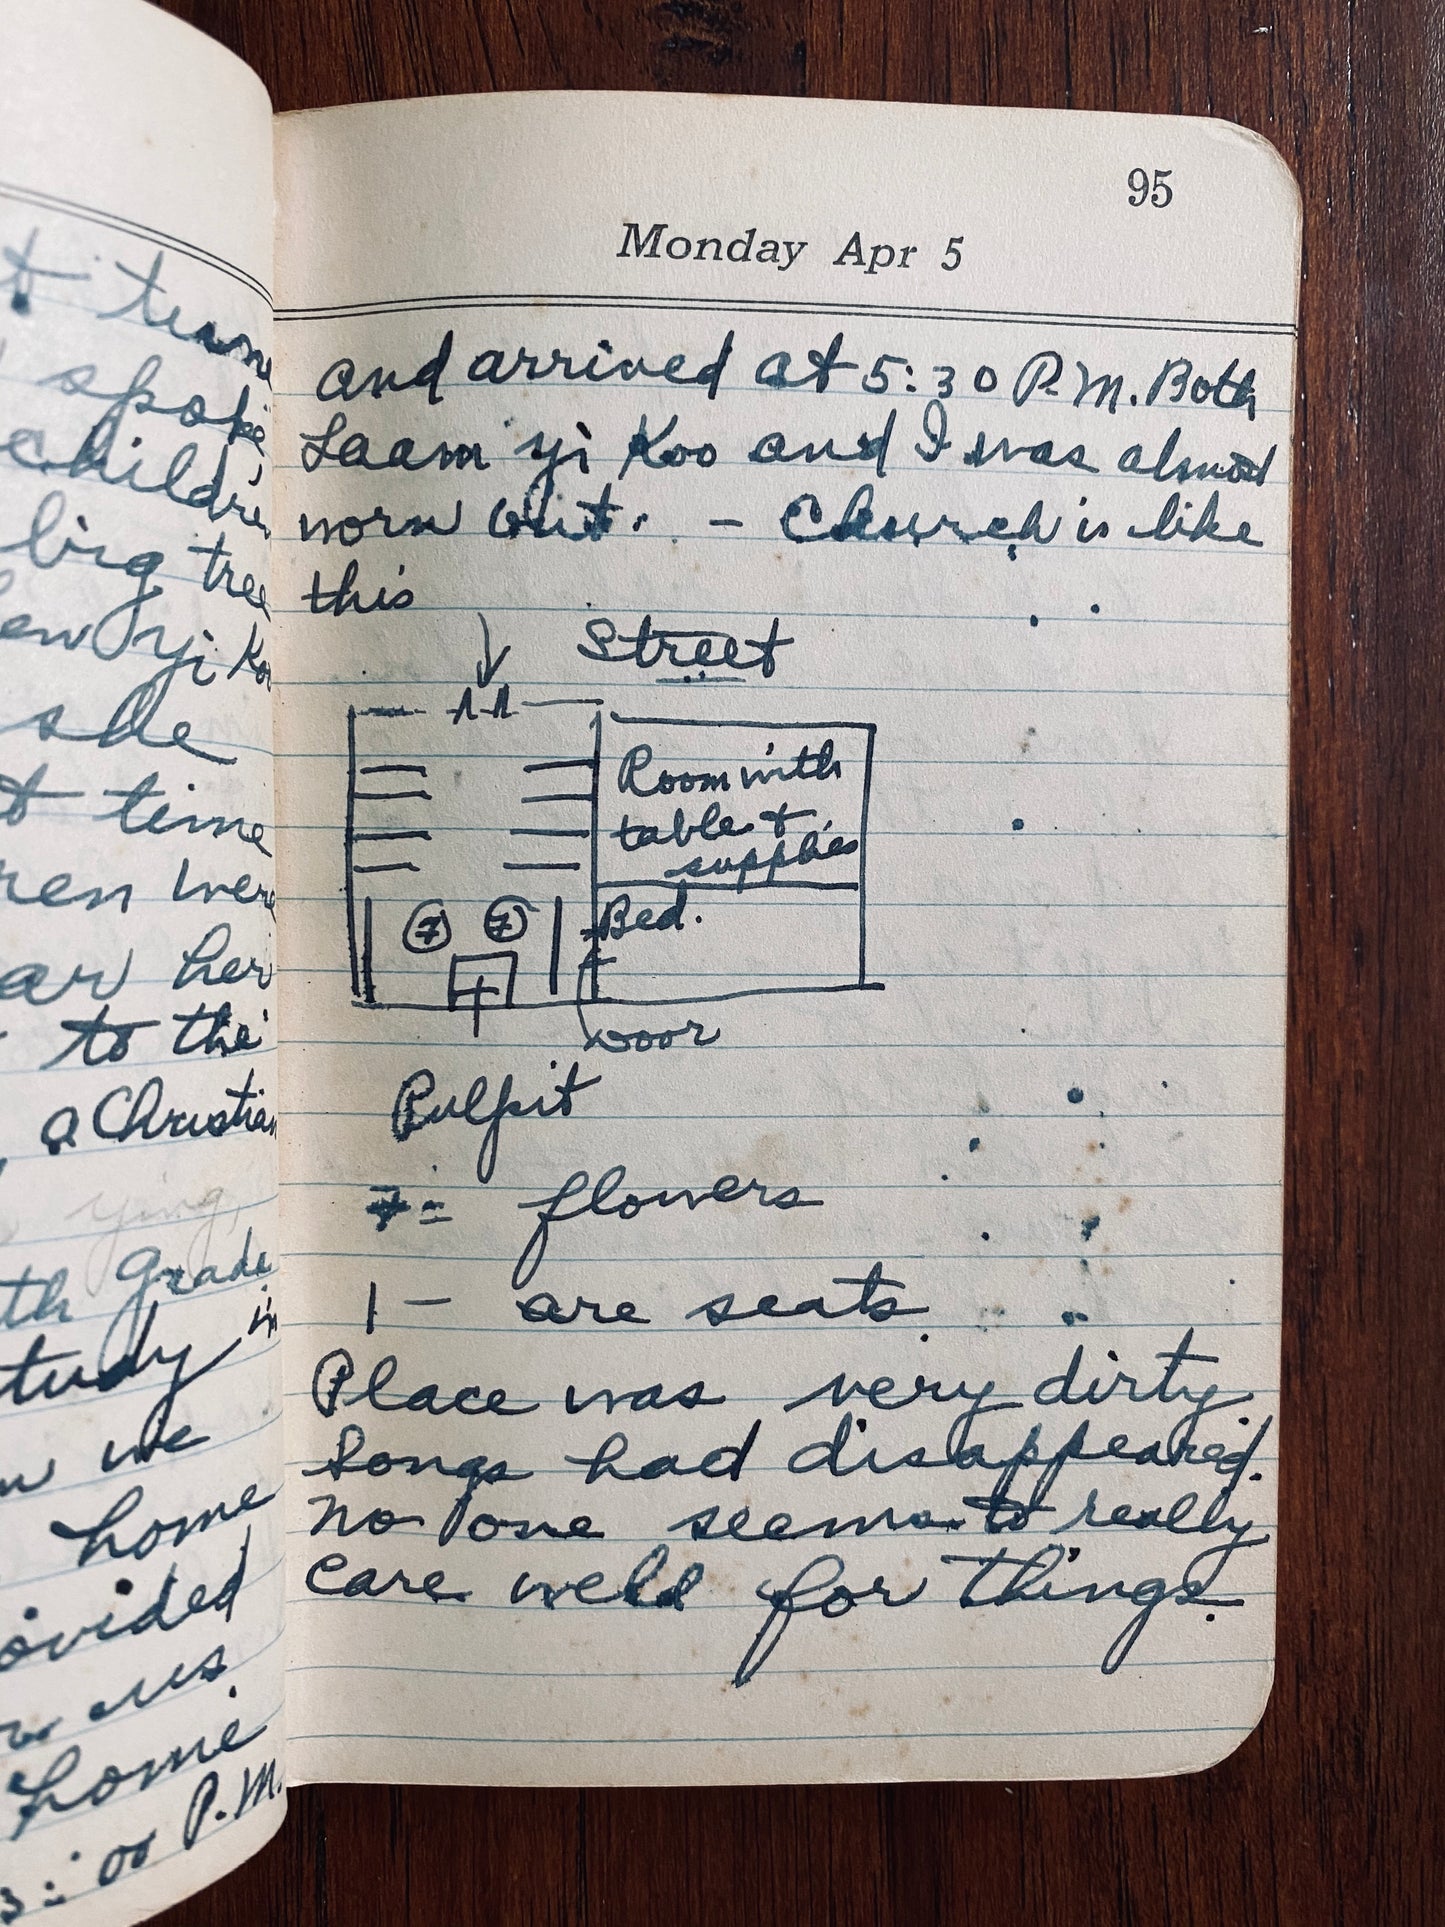 time
spoke
children
big tree
yi Koo
she
time
ren were
her
to the
a Christian
ying,
th grade
study in
we
home
ovided
us
home
3:00 P.M.
95
Monday Apr 5
and arrived at 5:30 P.M. Both
Laam yi Koo and I was almost
worn out. - Church is like
this
Street
Room with
table &
supplies
Bed.
7 7
Door
Pulpit
7 = flowers
| — are seats
Place was very dirty
Songs had disappeared.
No one seems to really
care well for things.